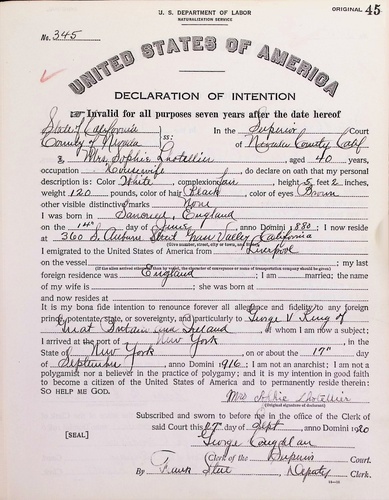 U. S. DEPARTMENT OF LABOR
NATURALIZATION SERVICE
ORIGINAL 45
No. 345
UNITED STATES OF AMERICA
DECLARATION OF INTENTION
Invalid for all purposes seven years after the date hereof
State of California
In the Superior Court
County of Nevada ss: of Nevada County Calif
I, Mrs. Sophie Lhotellier, aged 40 years,
occupation Housewife, do declare on oath that my personal
description is: Color White, complexion Fair, height 5 feet 2 inches,
weight 120 pounds, color of hair Black, color of eyes Brown
other visible distinctive marks None
I was born in England
on the 14th day of June, anno Domini 1880; I now reside
at 360 S. Auburn Street Grass Valley, California
(Give number, street, city or town, and State.)
I emigrated to the United States of America from Liverpool
on the vessel ; my last
(If the alien arrived otherwise than by vessel, the character of conveyance or name of transportation company should be given.)
foreign residence was England; I am married; the name
of my wife is ; she was born at
and now resides at
It is my bona fide intention to renounce forever all allegiance and fidelity to any foreign
prince, potentate, state, or sovereignty, and particularly to George V King of
Great Britain and Ireland, of whom I am now a subject;
I arrived at the port of New York, in the
State of New York, on or about the 17th day
of September, anno Domini 1916; I am not an anarchist; I am not a
polygamist nor a believer in the practice of polygamy; and it is my intention in good faith
to become a citizen of the United States of America and to permanently reside therein:
SO HELP ME GOD.
Mrs Sophie Lhotellier
(Original signature of declarant)
Subscribed and sworn to before me in the office of the Clerk of
said Court this 27 day of Sept, anno Domini 1920
[SEAL]
George Coughlan
Clerk of the Superior Court.
By Frank Steel, Deputy Clerk.